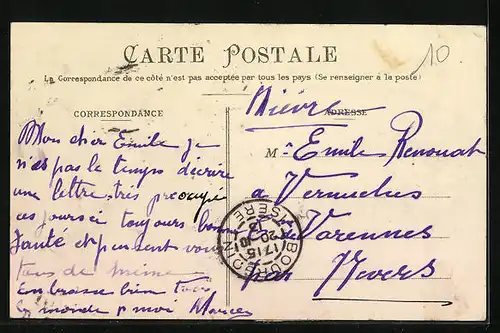 10
CARTE POSTALE
La Correspondance de ce côté n'est pas acceptée par tous les pays (Se renseigner à la poste)
CORRESPONDANCE
Mon cher Emile je
n'ai pas le temps d'écrire
une lettre très préoccupé
ces jours ci toujours bonne
santé et pensent vous
tous de même
Embrasse bien tous
le monde p moi Marcel
Nièvre
ADRESSE
Mr Emile Renouat
a
Varennes
par Nevers
BOURGOIN
ISERE
17 15
20